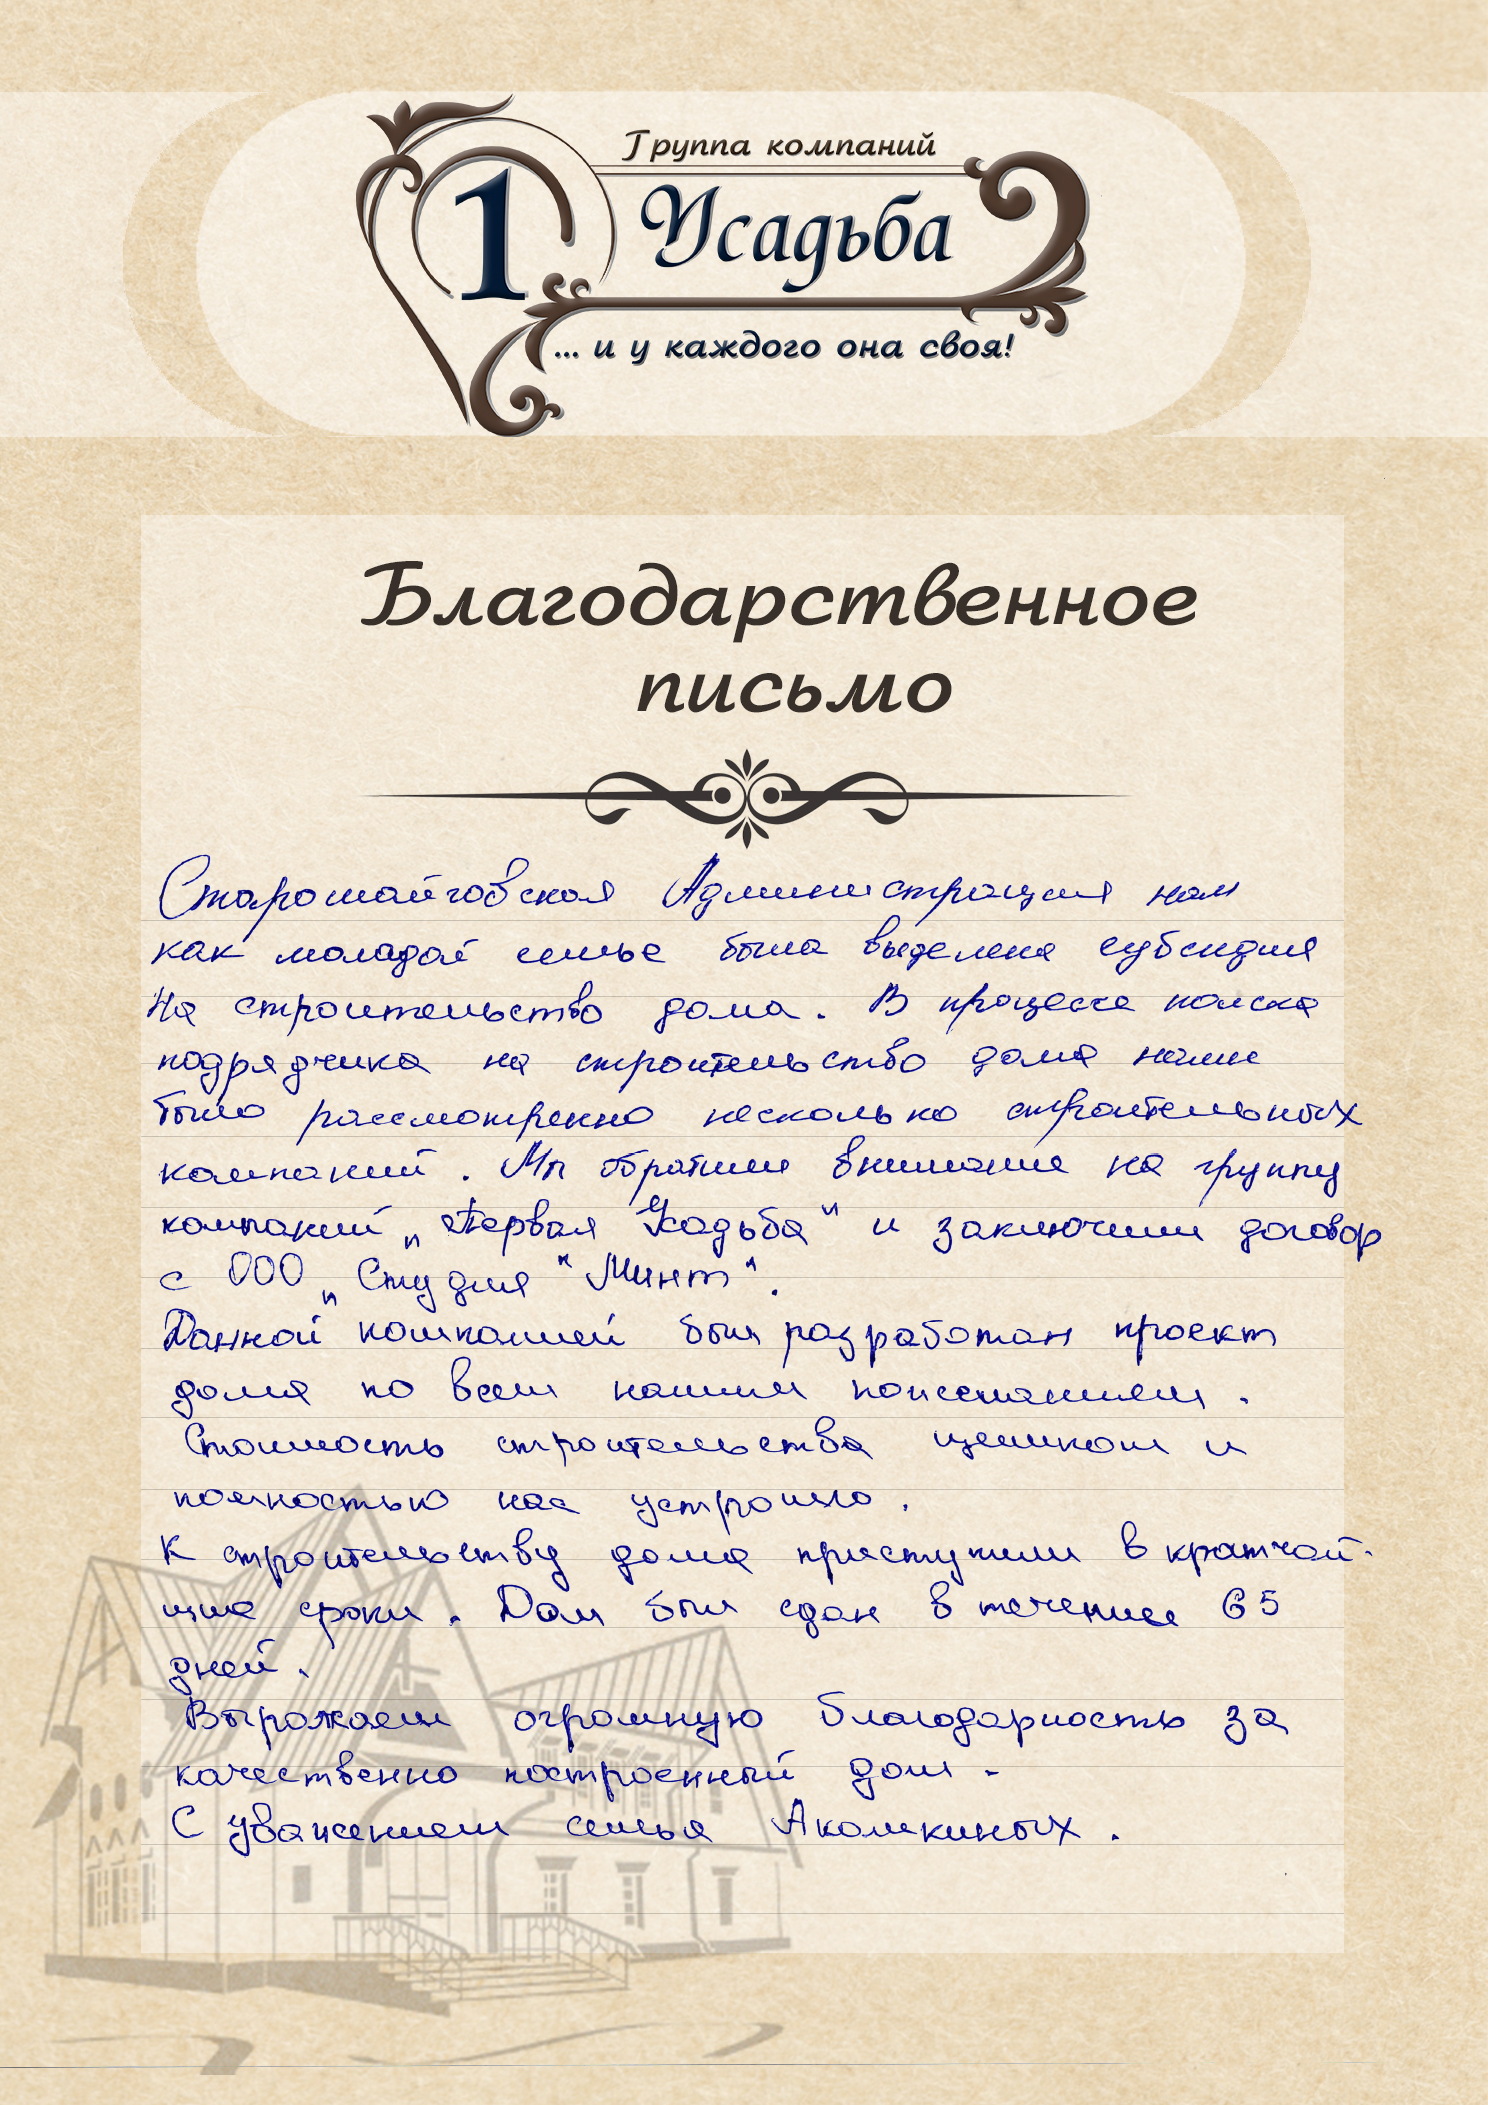 Группа компаний
1 Усадьба
... и у каждого она своя!
Благодарственное
письмо
Старошайговская Администрация нам
как молодой семье была выделена субсидия
На строительство дома. В процессе поиска
подрядчика на строительство дома нами
было рассмотренно несколько строительных
компаний. Мы обратили внимание на группу
компаний „Первая Усадьба" и заключили договор
с ООО „Студия "Минт".
Данной компанией был разработан проект
дома по всем нашим пожеланиям.
Стоимость строительства целиком и
полностью нас устроило.
К строительству дома приступили в кратчай-
шие сроки. Дом был сдан в течении 65
дней.
Выражаем огромную благодарность за
качественно построенный дом.
С уважением семья Акомкиных.